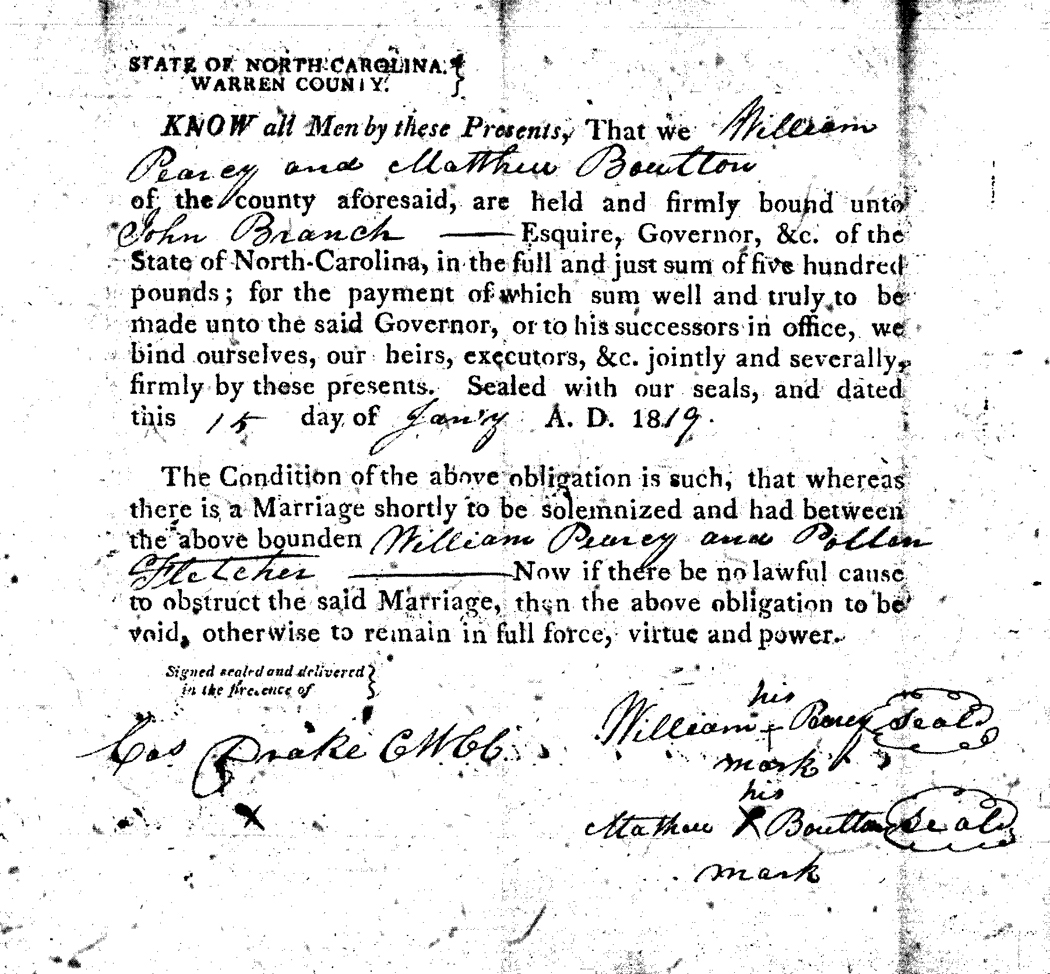 STATE OF NORTH-CAROLINA.
WARREN COUNTY.
KNOW all Men by these Presents, That we William
Pearcy and Matthew Boutton
of the county aforesaid, are held and firmly bound unto
John Branch Esquire, Governor, &c. of the
State of North-Carolina, in the full and just sum of five hundred
pounds; for the payment of which sum well and truly to be
made unto the said Governor, or to his successors in office, we
bind ourselves, our heirs, executors, &c. jointly and severally,
firmly by these presents. Sealed with our seals, and dated
this 15 day of Jan'y A. D. 1819.
The Condition of the above obligation is such, that whereas
there is a Marriage shortly to be solemnized and had between
the above bounden William Pearcy and
Fletcher Now if there be no lawful cause
to obstruct the said Marriage, then the above obligation to be
void, otherwise to remain in full force, virtue and power.
Signed sealed and delivered
in the presence of
his
William + Pearcy seal
Cas Drake CWCC
mark
his
Mathew X Boutton seal
X
mark